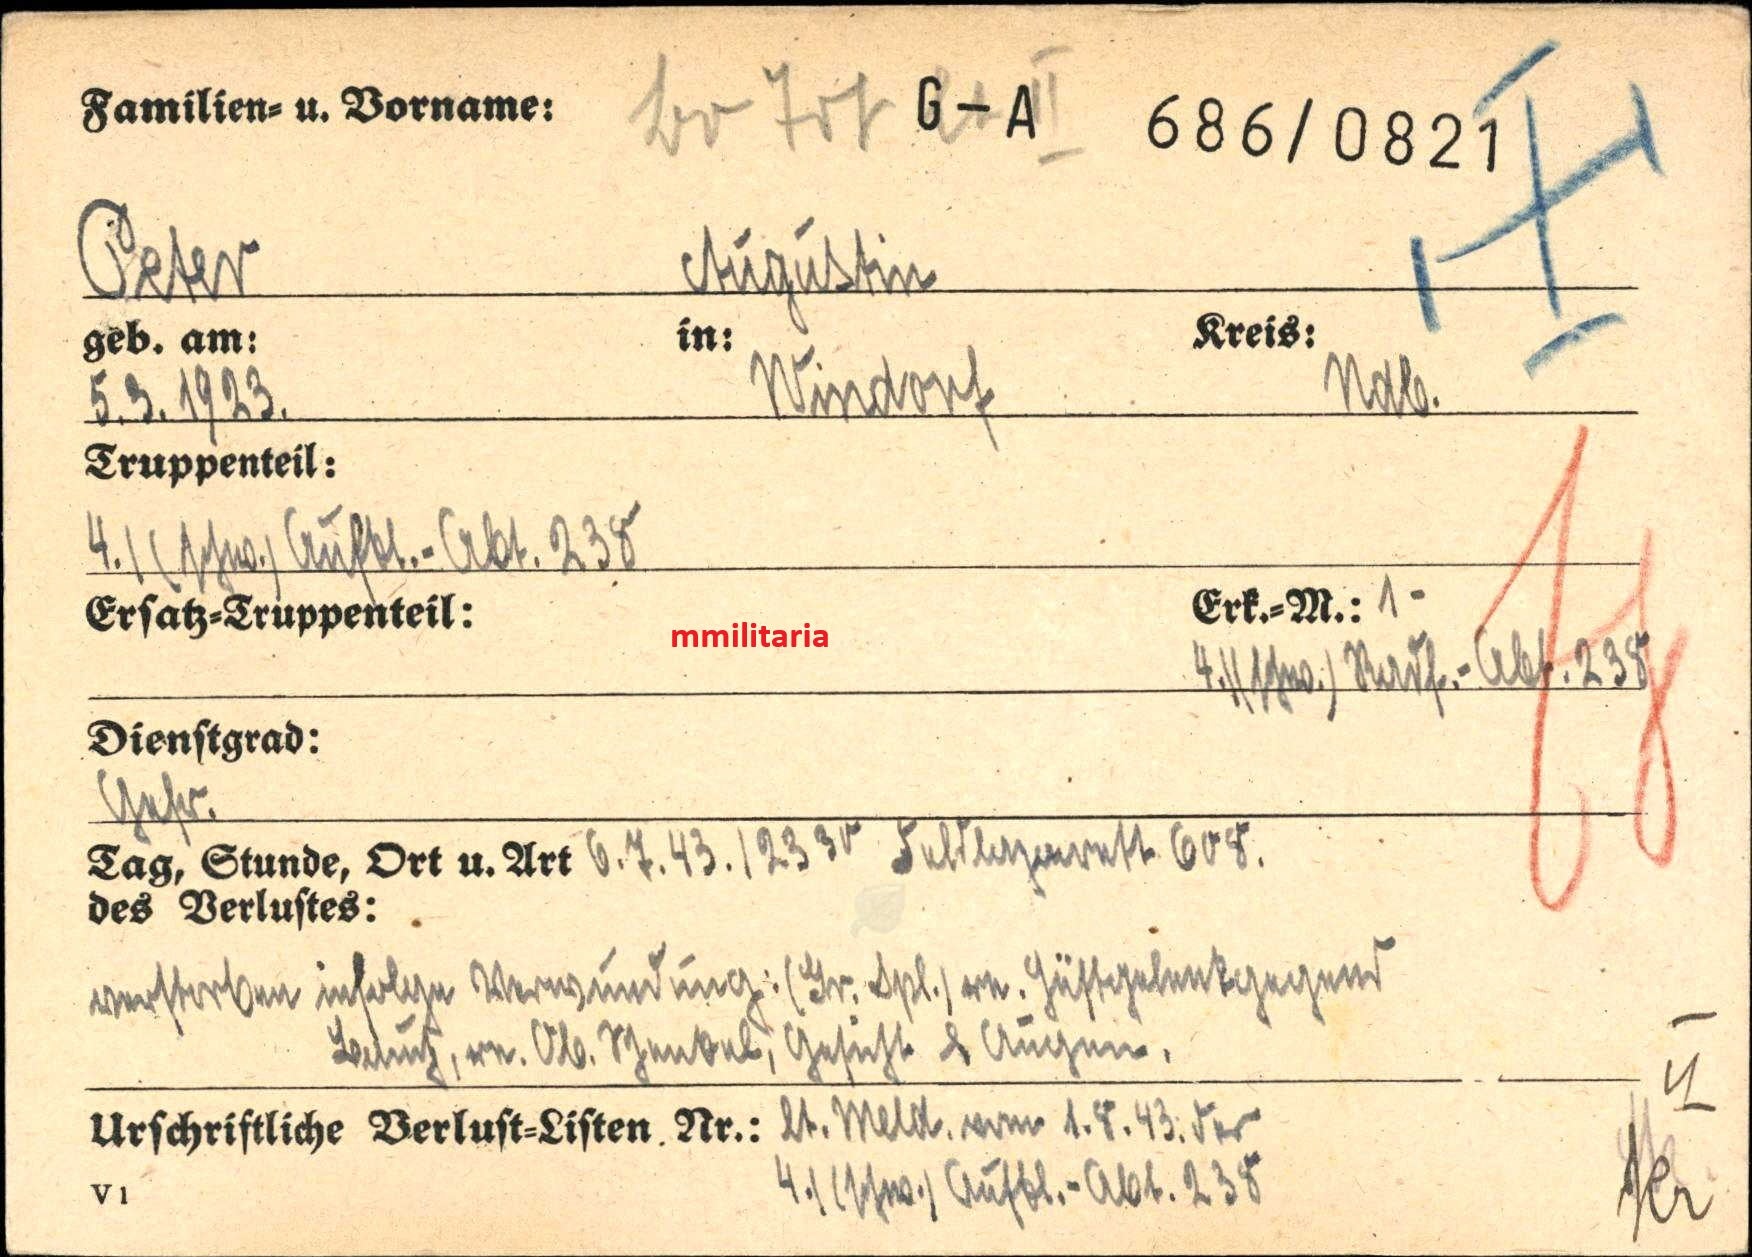 Familien- u. Vorname: G-A 686/0821
Peter Augustin
geb. am: in: Kreis:
5.3.1923. Windorf Ndb.
Truppenteil:
4./(schw.) Aufkl.-Abt. 238
Ersatz-Truppenteil: Erk.-M.: 1-
mmilitaria
4./(schw.) Radf.-Abt. 238
Dienstgrad:
Gefr.
Tag, Stunde, Ort u. Art 6.7.43./23 30 Feldlazarett 608.
des Verlustes:
verstorben infolge Verwundung: (Gr. Spl.) re. Hüftgelenkgegend
Bauch, re. Ob. Schenkel, Gesicht & Augen.
Urschriftliche Verlust-Listen Nr.: lt. Meld. vom 1.8.43. der
4./(schw.) Aufkl.-Abt. 238
V 1